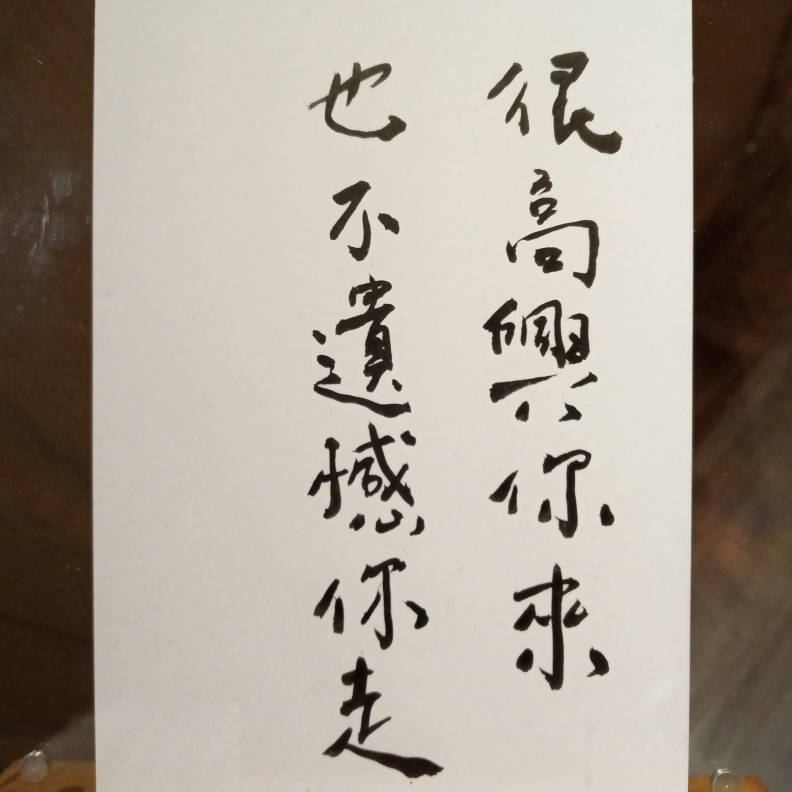 很高興你來
也不遺憾你走